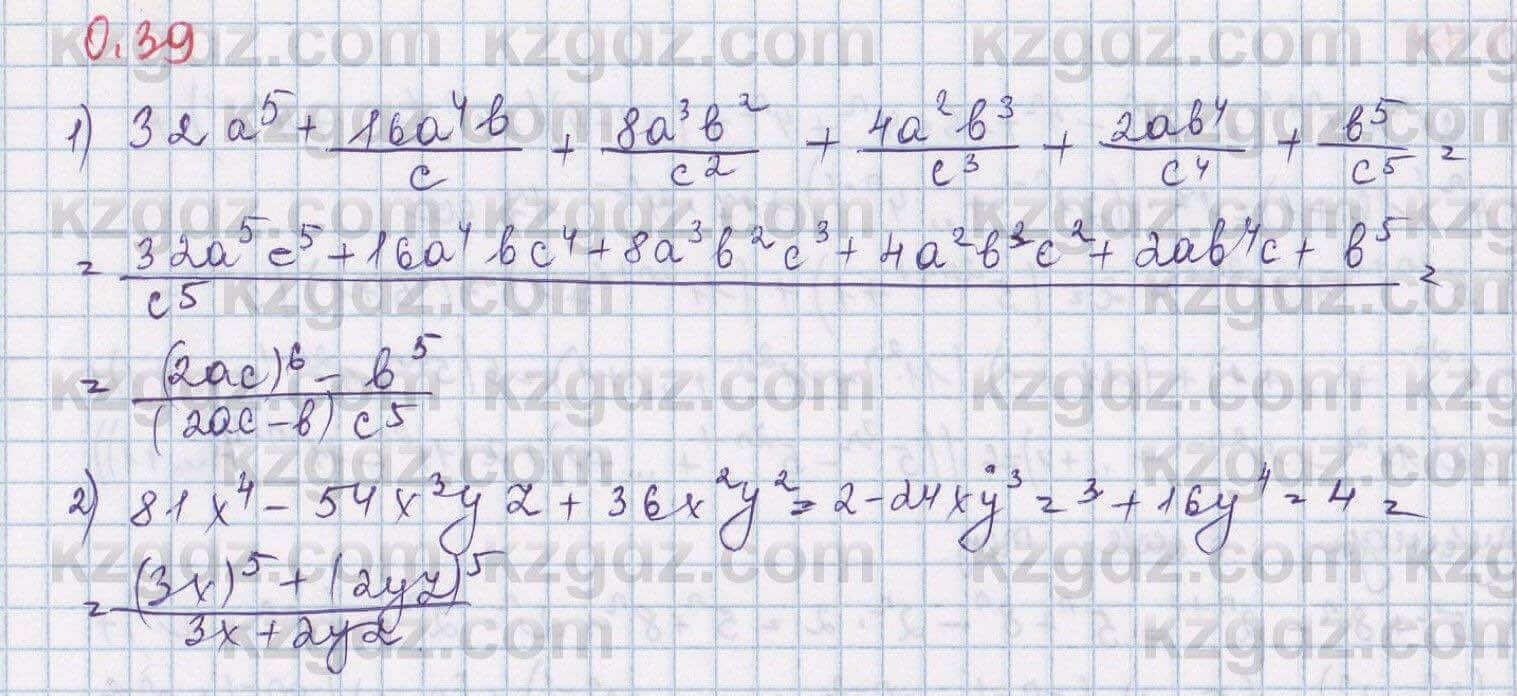 0.39
1) 32a⁵ + 16a⁴b/c + 8a³b²/c² + 4a²b³/c³ + 2ab⁴/c⁴ + b⁵/c⁵ =
= (32a⁵c⁵ + 16a⁴bc⁴ + 8a³b²c³ + 4a²b³c² + 2ab⁴c + b⁵)/c⁵ =
= ((2ac)⁶ - b⁵)/((2ac - b) c⁵)
2) 81x⁴ - 54x³yz + 36x²y² = 2 - 24xy³ = ³ + 16y⁴ = 4 =
= ((3x)⁵ + (2yz)⁵)/(3x + 2yz)
kzgdz.com